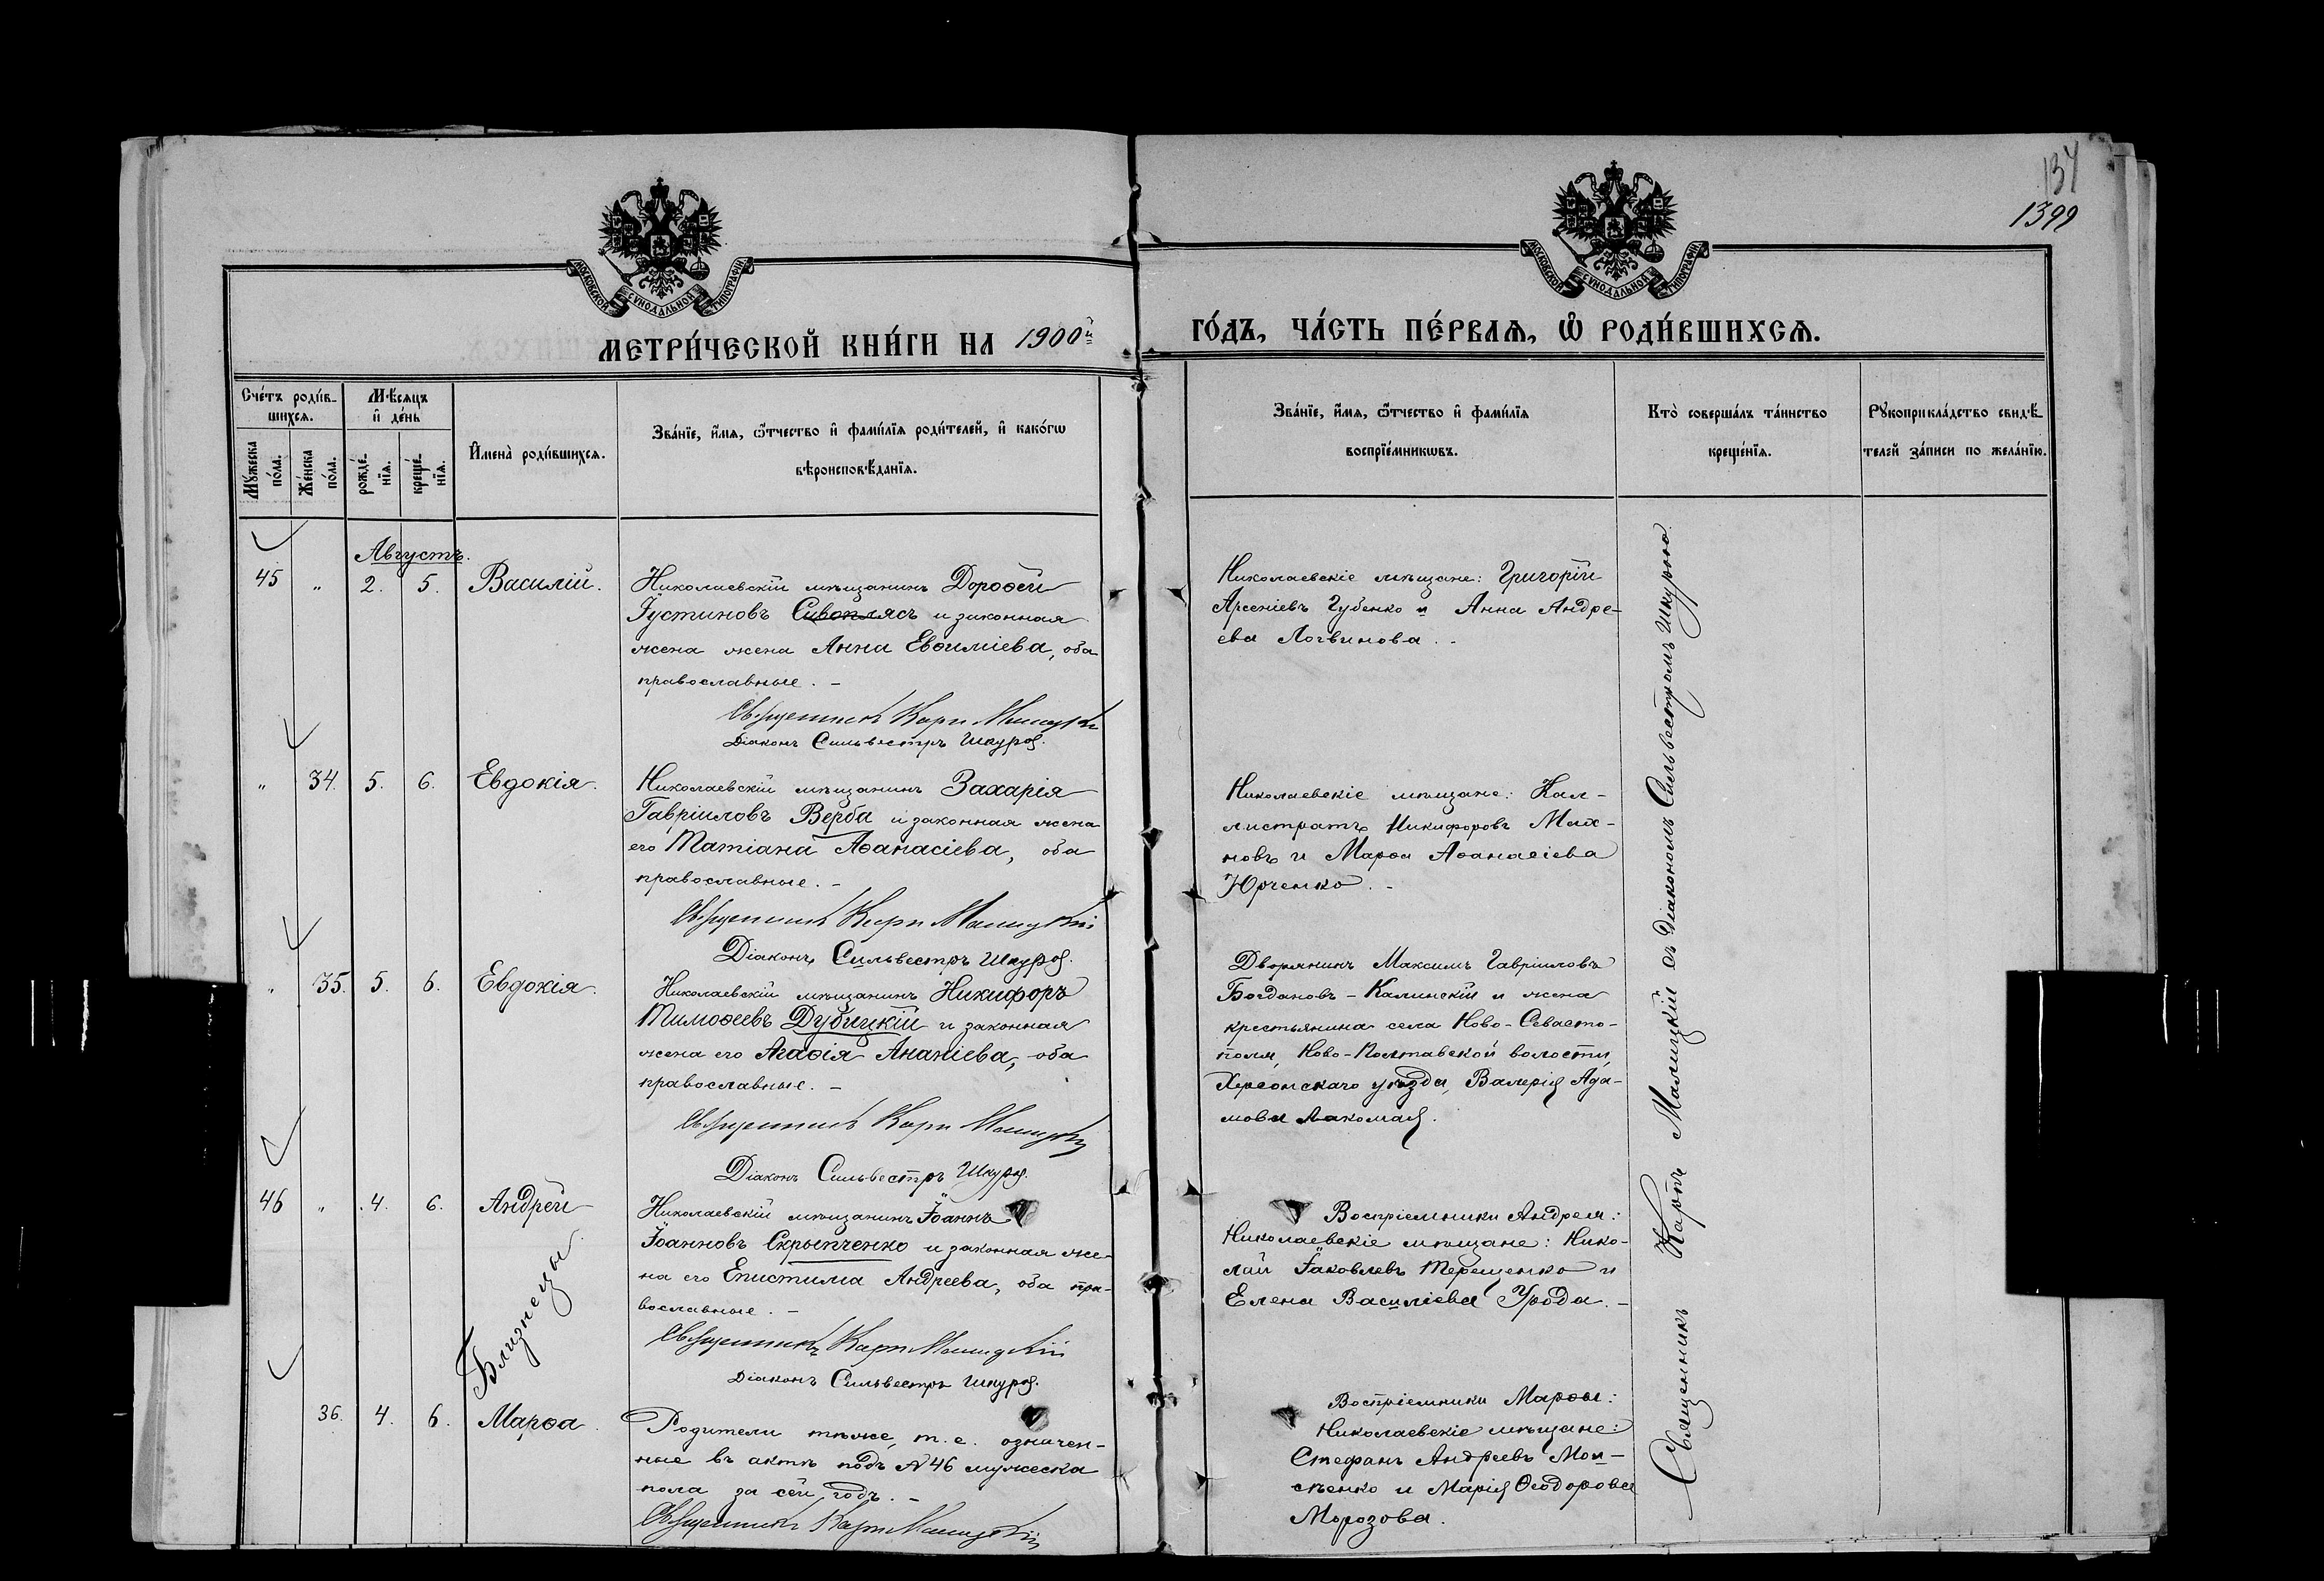 134
1399
МОСКОВСКОЙ СѴНОДАЛЬНОЙ ТИПОГРАФІИ
МОСКОВСКОЙ СѴНОДАЛЬНОЙ ТИПОГРАФІИ
МЕТРИ́ЧЕСКОЙ КНИ́ГИ НА 1900й
ГО́ДЪ, ЧА́СТЬ ПЕ́РВАѦ, Ѡ РОДИ́ВШИХСѦ.
Сче́тъ роди́в-
шихсѧ.
Мѣ́сѧцъ
и де́нь
Мꙋ́жеска
по́ла.
Же́нска
по́ла.
рожде́-
нїѧ.
креще́-
нїѧ.
И҆мена̀ роди́вшихсѧ.
Зва́нїе, и҆́мѧ, ѻ҆́тчество и҆ фами́лїѧ роди́телей, и҆ како́гѡ
вѣроисповѣ́данїѧ.
Зва́нїе, и҆́мѧ, ѻ҆́тчество и҆ фами́лїѧ
воспрїе́мникѡвъ.
Кто̀ соверша́лъ та́инство
креще́нїѧ.
Рꙋкоприкла́дство свидѣ́-
телей за́писи по жела́нїю.
Августъ.
45 " 2. 5. Василій.
Николаевскій мѣщанинъ Дороѳей
Іустиновъ Сивоплясъ и законная
жена жена Анна Евѳиміева, оба
православные. –
Священникъ Карпъ Малицкій
Діаконъ Сильвестръ Шкуро.
Николаевскіе мѣщане: Григорій
Арсеніевъ Губенко и Анна Андре-
ева Логвинова. –
" 34. 5. 6. Евдокія.
Николаевскій мѣщанинъ Захарія
Гавріиловъ Верба и законная жена
его Татіана Аѳанасіева, оба
православные. –
Священникъ Карпъ Малицкій
Діаконъ Сильвестръ Шкуро.
Николаевскіе мѣщане: Кал-
листратъ Никифоровъ Мах-
новъ и Марѳа Аѳанасіева
Юрченко. –
" 35. 5. 6. Евдокія.
Николаевскій мѣщанинъ Никифоръ
Тимоѳеевъ Дубицкій и законная
жена его Агаѳія Ананіева, оба
православные. –
Священникъ Карпъ Малицкій
Діаконъ Сильвестръ Шкуро.
Дворянинъ Максимъ Гавріиловъ
Богдановъ-Калинскій и жена
крестьянина села Ново-Севасто-
поля, Ново-Полтавской волости,
Херсонскаго уѣзда, Валерія Ада-
мова Лакомая.
46 " 4. 6. Андрей
Николаевскій мѣщанинъ Іоаннъ
Іоанновъ Скрыпченко и законная же-
на его Епистимиа Андреева, оба пра-
вославные. –
Священникъ Карпъ Малицкій
Діаконъ Сильвестръ Шкуро.
Воспріемники Андрея:
Николаевскіе мѣщане: Нико-
лай Іаковлевъ Терещенко и
Елена Василіева Урода. –
Близнецы
36. 4. 6. Марѳа.
Родители тѣже, т. е. означен-
ные въ актѣ подъ № 46 мужеска
пола за сей годъ. –
Священникъ Карпъ Малицкій
Воспріемники Марѳы:
Николаевскіе мѣщане:
Стефанъ Андреевъ Мои-
сѣенко и Марія Ѳеодорова
Морозова.
Священникъ Карпъ Малицкій съ Діакономъ Сильвестромъ Шкурою.